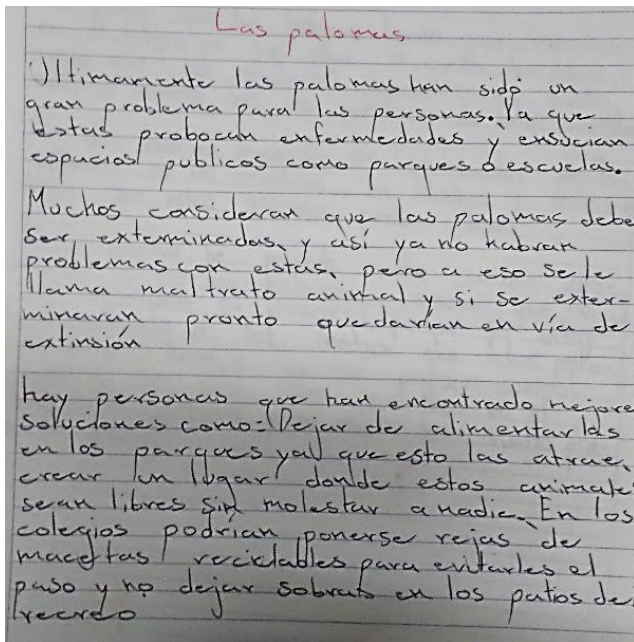 Las palomas
Últimamente las palomas han sido un
gran problema para las personas. Ya que
estas probocan enfermedades y ensucian
espacios publicos como parques o escuelas.
Muchos consideran que las palomas debe
ser exterminadas, y así ya no habran
problemas con estas, pero a eso se le
llama maltrato animal y si se exter-
minaran pronto quedarían en vía de
extinsión
hay personas que han encontrado mejore
soluciones como: Dejar de alimentarlas
en los parques ya que esto las atrae,
crear un lugar donde estos animale
sean libres sin molestar a nadie. En los
colegios podrían ponerse rejas de
macetas reciclables para evitarles el
paso y no dejar sobras en los patios de
recreo